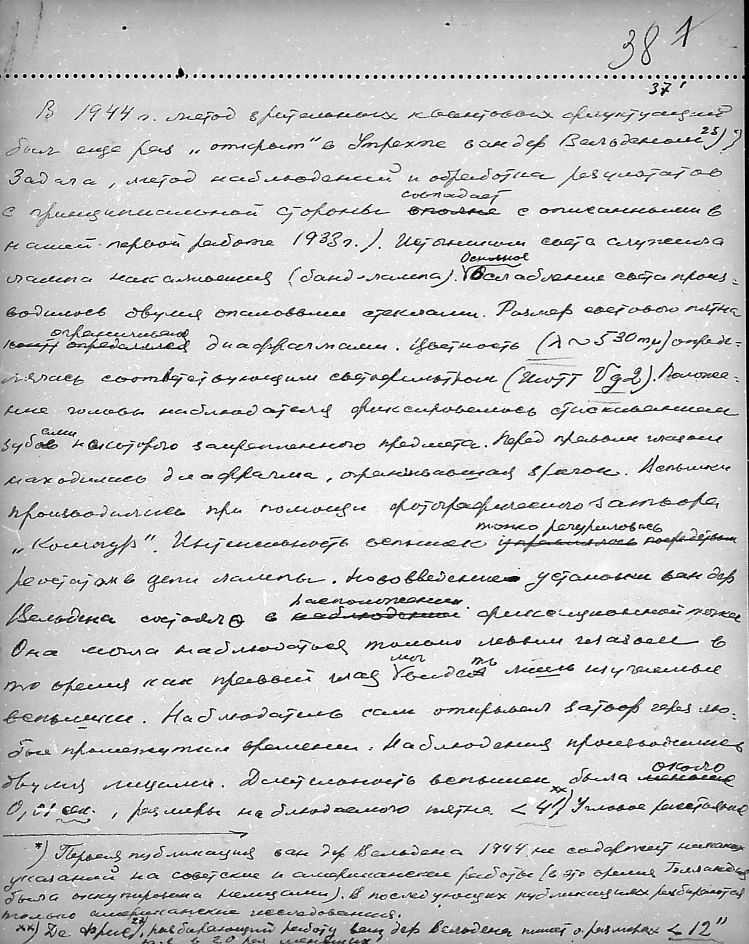 38 1
37'
В 1944 г. метод зрительных квантовых флуктуаций
был еще раз „открыт" в Утрехте ван дер Вельденом 25) *)
Задача, метод наблюдений и обработка результатов
совпадает
с принципиальной стороны вполне с описанными в
нашей первой работе 1933 г.). Источником света служила
лампа накаливания (банд-лампа). Основное ослабление света произ-
водилось двумя опаловыми стеклами. Размер светового пятна
ограничивался
определялся диафрагмами. Цветность (λ ~ 530 mμ) опреде-
лялась соответствующим светофильтром (Шотт Vg2). Положе-
ние головы наблюдателя фиксировалось стискиванием
зубами некоторого закрепленного предмета. Перед правым глазом
находилась диафрагма, ограничивавшая зрачок. Вспышки
производились при помощи фотографического затвора
тонко регулировалась
„Компур". Интенсивность вспышек управлялась посредством
реостатом в цепи лампы. Нововведение установки ван дер
расположении
Вельдена состояло в наблюдении фиксационной точки
Она могла наблюдаться только левым глазом в
мог
то время как правый глаз видеть лишь изучаемые
вспышки. Наблюдатель сам открывал затвор через лю-
бые промежутки времени. Наблюдения производились
около
двумя лицами. Длительность вспышек была меньше
0,01 сек., размеры наблюдаемого пятна < 4' xx) Угловое расстояние
*) Первая публикация ван дер Вельдена 1944 не содержит никаких
указаний на советские и американские работы (в это время Голландия
была оккупирована немцами). В последующих публикациях разбираются
только американские исследования.
xx) Де Фриз, разбирающий работу ван дер Вельдена пишет о размерах < 12"
т.е. в 20 раз меньших